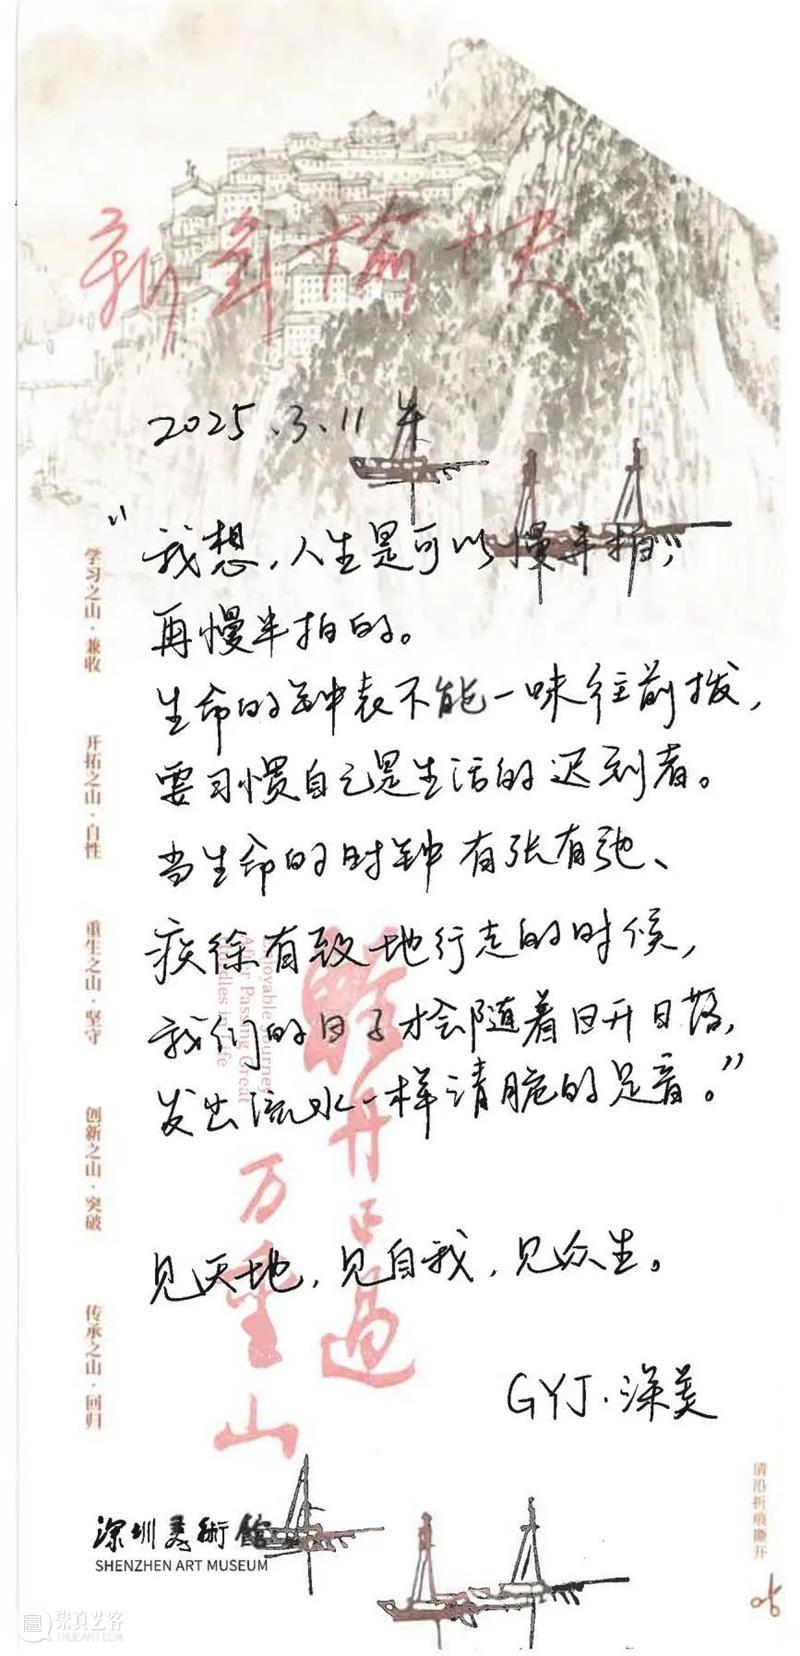 新年愉快
2025.3.11
“我想，人生是可以慢半拍，
再慢半拍的。
生命的钟表不能一味往前拨，
要习惯自己是生活的迟到者。
当生命的时钟有张有弛、
疾徐有致地行走的时候，
我们的日子才会随着日升日落，
发出流水一样清脆的足音。”
见天地，见自我，见众生。
GYJ.深美
学习之山·兼收
开拓之山·自性
重生之山·坚守
创新之山·突破
传承之山·回归
轻舟已过
万重山
Enjoyable Journey
After Passing Great
in Life
深圳美術館
SHENZHEN ART MUSEUM
请沿折痕撕开
崇真艺客
TRUEART.COM